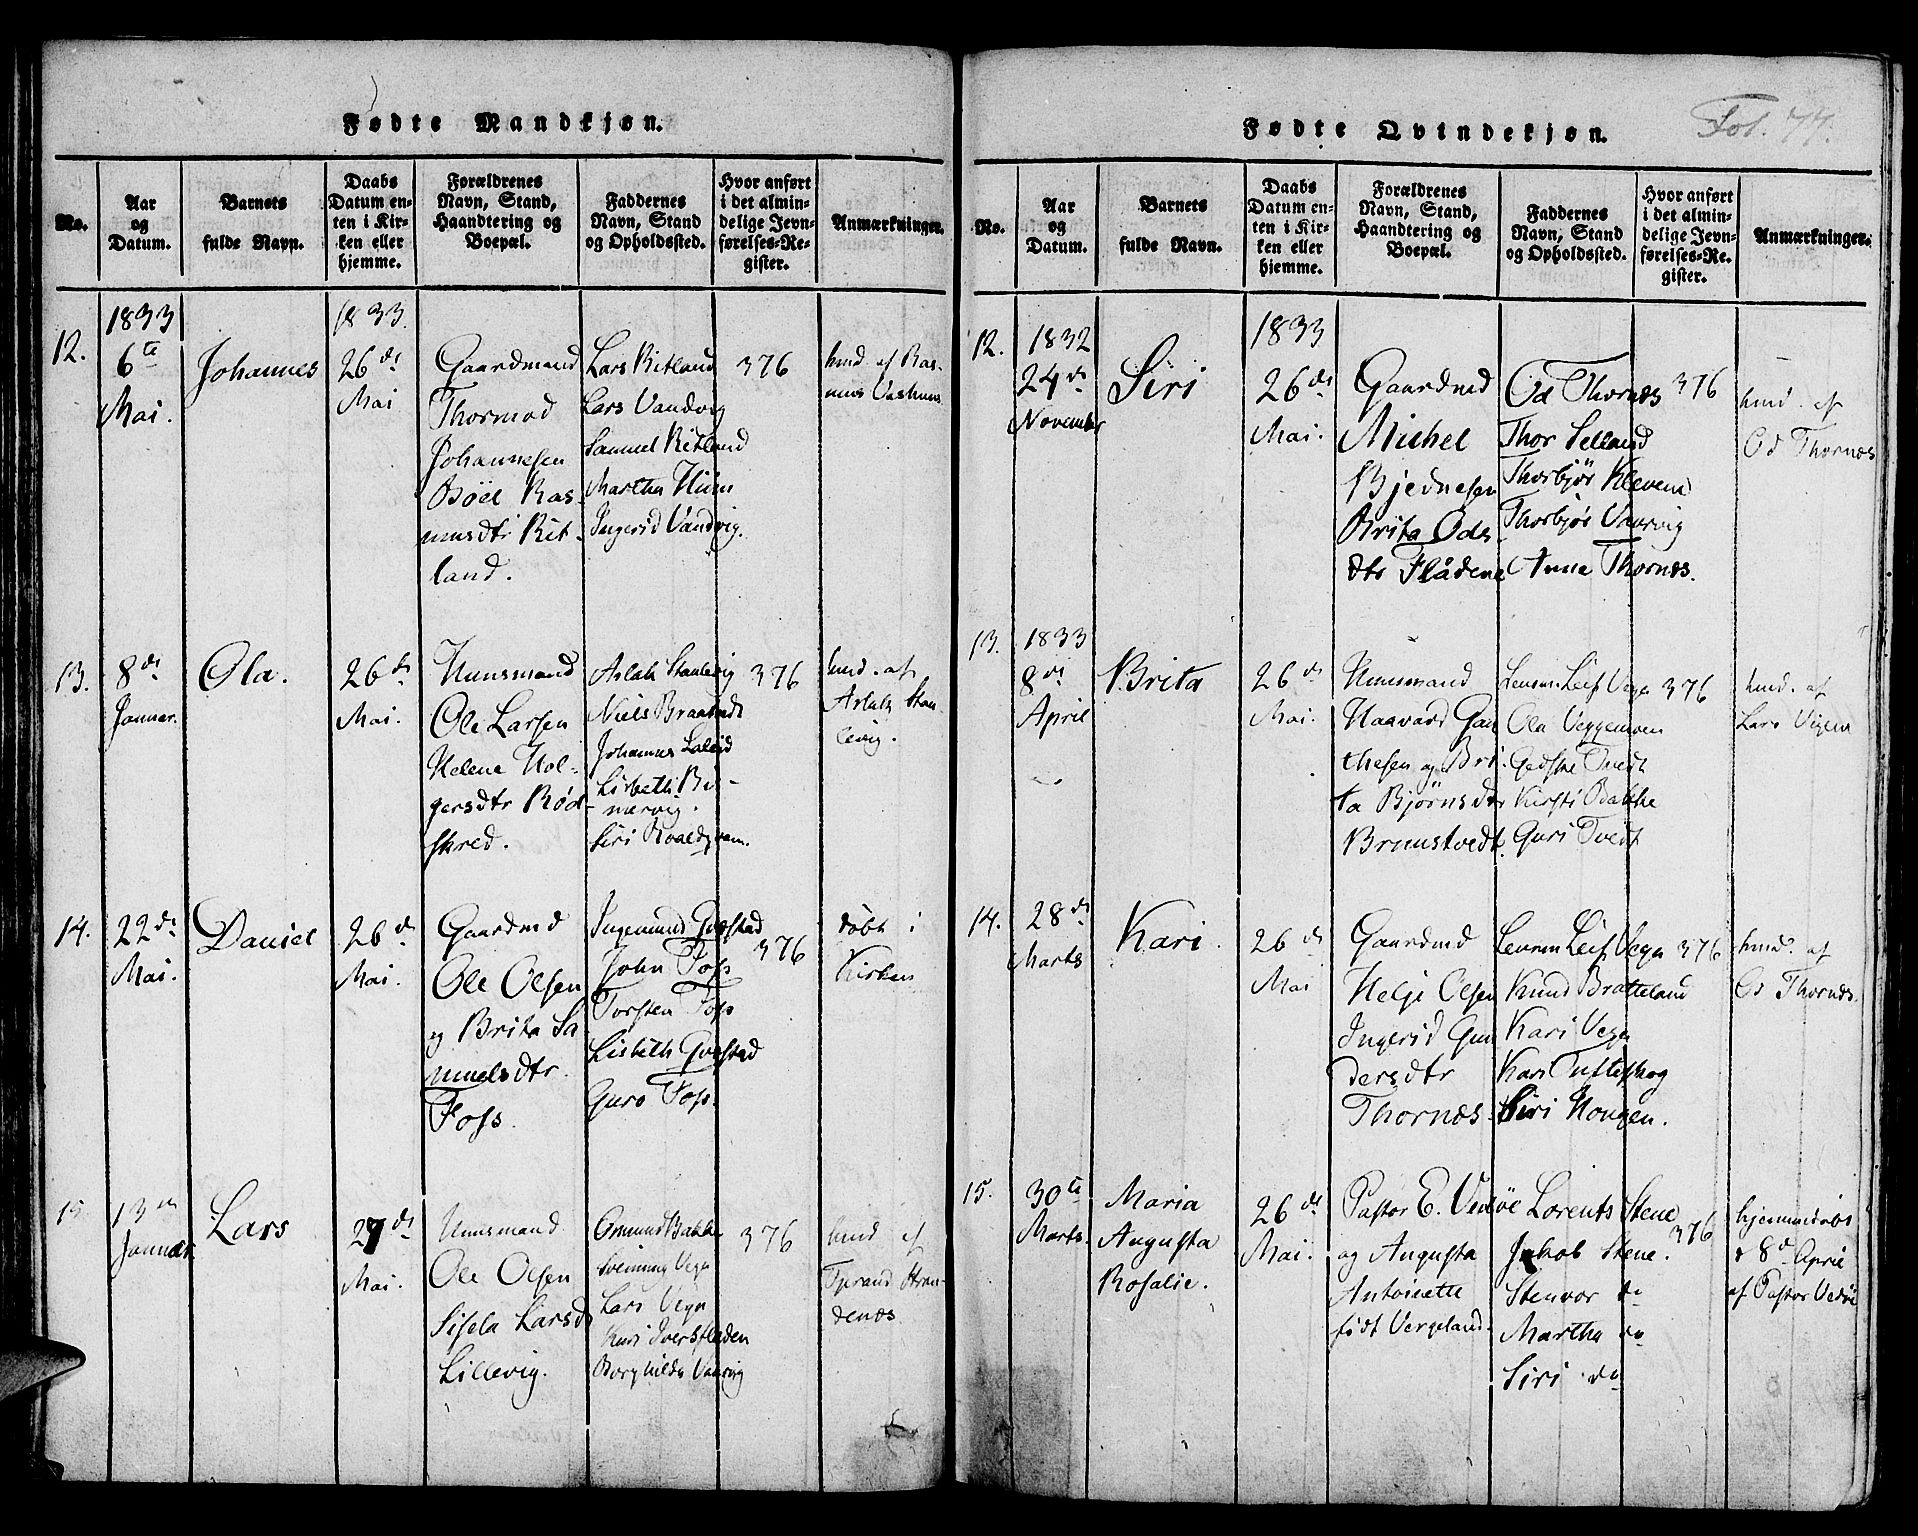 Fødte Mandkjøn.
No.
Aar
og
Datum.
Barnets
fulde Navn.
Daabs
Datum en-
ten i Kir-
ken eller
hjemme.
Forældrenes
Navn, Stand,
Haandtering og
Boepæl.
Faddernes
Navn, Stand
og Opholdssted.
Hvor anført
i det almin-
delige Jevn-
førelses-Re-
gister.
Anmærkninger.
12.
1833
6te
Mai.
Johannes
1833.
26ds
Mai
Gaardmand
Thormod
Johannesen
Boel Ras-
musdtr Rit-
land.
Lars Ritland
Lars Vandvig
Samuel Ritland
Martha Hiim
Ingerid Vandvig.
376
hmd. af Ras-
mus
13.
8ds
Januar.
Ola.
26ds
Mai.
Huusmand
Ole Larsen
Helene Hol-
gersdtr Rød-
skred.
Aslak Stanlevig
Niels
Johannes
Lisbeth
Siri
376
hmd. af
Aslak Stan
levig.
14.
22ds
Mai.
Daniel
26ds
Mai.
Gaardmd
Ole Olsen
og Brita Sa
muelsdtr
Foss.
Ingemund
John Foss
Torsten Foss
Lisbeth
Guro Foss.
376
døbt i
Kirken
15
13de
Januar.
Lars
27ds
Mai.
Huusmand
Ole Olsen
Sisela Larsd
Lillevig.
Omund Bakke
Sveinung Vega
Lars Vega
Kari
Borghilda Vaarvig
376
hmd af
Stran-
denæs
Fødte Qvindekjøn.
Fol. 77.
No.
Aar
og
Datum.
Barnets
fulde Navn.
Daabs
Datum en-
ten i Kir-
ken eller
hjemme.
Forældrenes
Navn, Stand,
Haandtering og
Boepæl.
Faddernes
Navn, Stand
og Opholdssted.
Hvor anført
i det almin-
delige Jevn-
førelses-Re-
gister.
Anmærkninger.
12.
1832
24de
November
Siri
1833
26ds
Mai.
Gaardmd
Michel
Bjednesen
Brita Ods-
dtr Flådene
Od Thornæs
Thor Selland
Thorbjør Klevene
Thorbjør Vaarvig
Anna Thornæs.
376
hmd. af
Od Thornæs
13.
1833
8de
April
Brita
26ds
Mai.
Huusmand
Haavard Gau
thesen og Bri-
ta Bjørnsdtr
Brumstvedt.
Lensm. Leif Vega
Ola Veggemoen
Gedske Tvedt
Kirsti Bakke
Guri Tvedt
376
hmd. af
Lars
14.
28de
Marts
Kari.
26ds
Mai
Gaardmd
Helje Olsen
Ingerid Gun
dersdtr
Thornæs.
Lensm Leif Vega
Knud Bratteland
Kari Vega
Kari Tufteskog
Siri Hougen.
376
hmd. af
Od Thornæs.
15.
30te
Marts.
Maria
Augusta
Rosalie.
26ds
Mai.
Pastor E. Vedøe
og Augusta
Antoinette
født Vergeland.
Lorents Stene
Jakob Stene.
Stenvor do
Martha do
Siri do
376
hjemmedøbt
d 8de April
af Pastor Vedøe